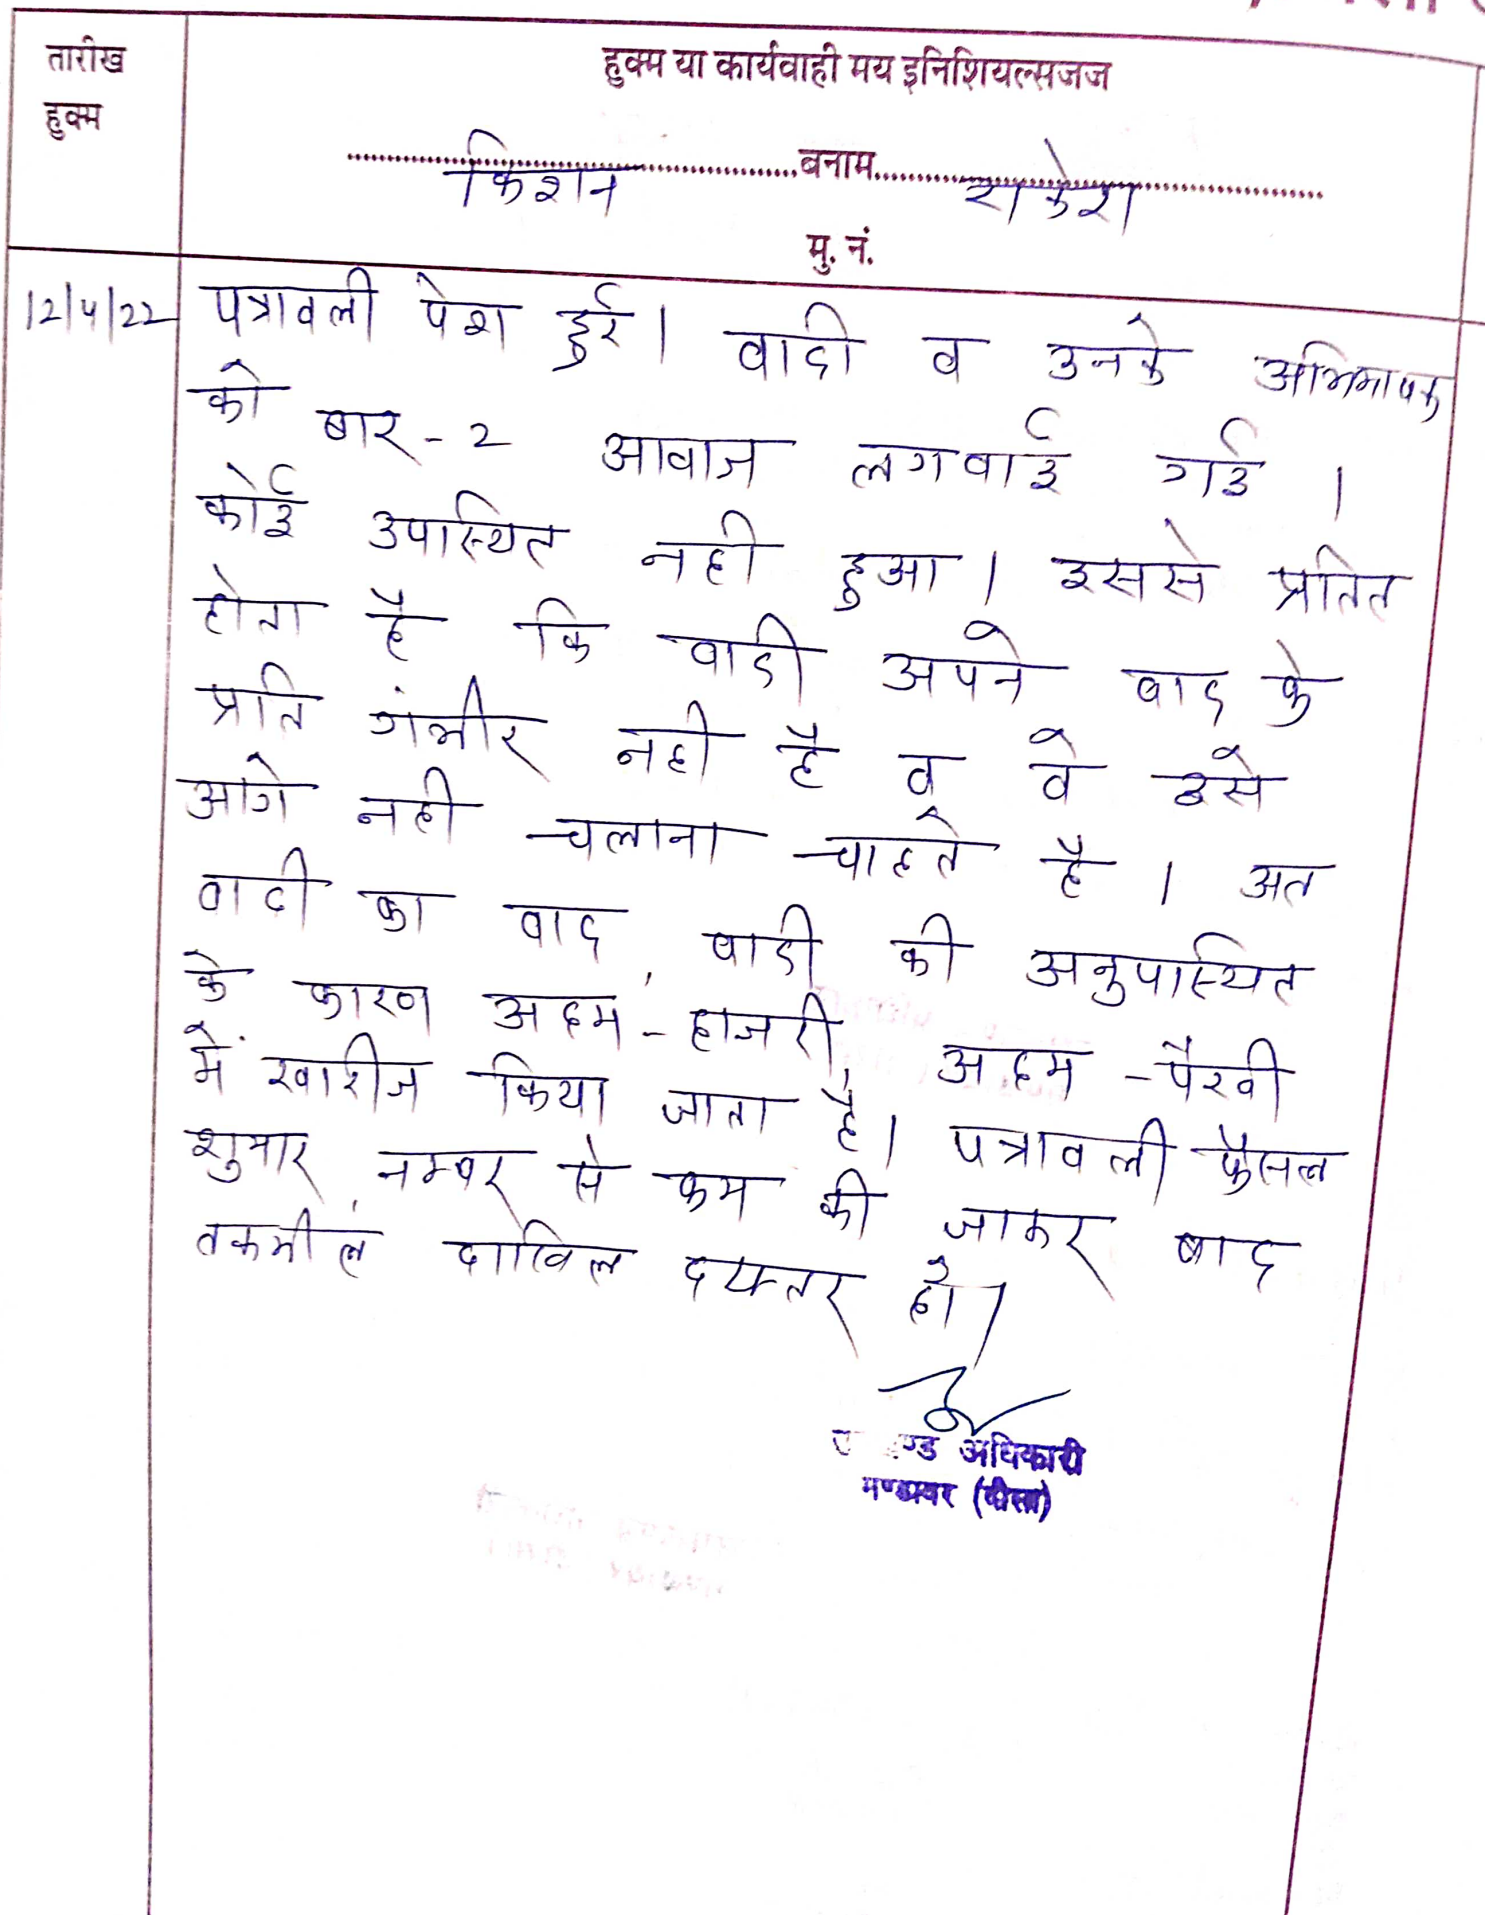 तारीख
हुक्म
हुक्म या कार्यवाही मय इनिशियल्सजज
किशन बनाम राकेश
मु. नं.
12/4/22 पत्रावली पेश हुई। वादी व उनके अभिभाषक
को बार-2 आवाज लगवाई गई ।
कोई उपस्थित नही हुआ। इससे प्रतित
होता है कि वादी अपने वाद के
प्रति गंभीर नही है व वे इसे
आगे नही चलाना चाहते है । अत
वादी का वाद, वादी की अनुपस्थित
के कारण अदम-हाजरी, अदम-पैरवी
में खारीज किया जाता है। पत्रावली फैसल
शुमार नम्बर से कम की जाकर बाद
तकमील दाखिल दफ्तर हो।
अधिकारी
मण्डावर (दौसा)